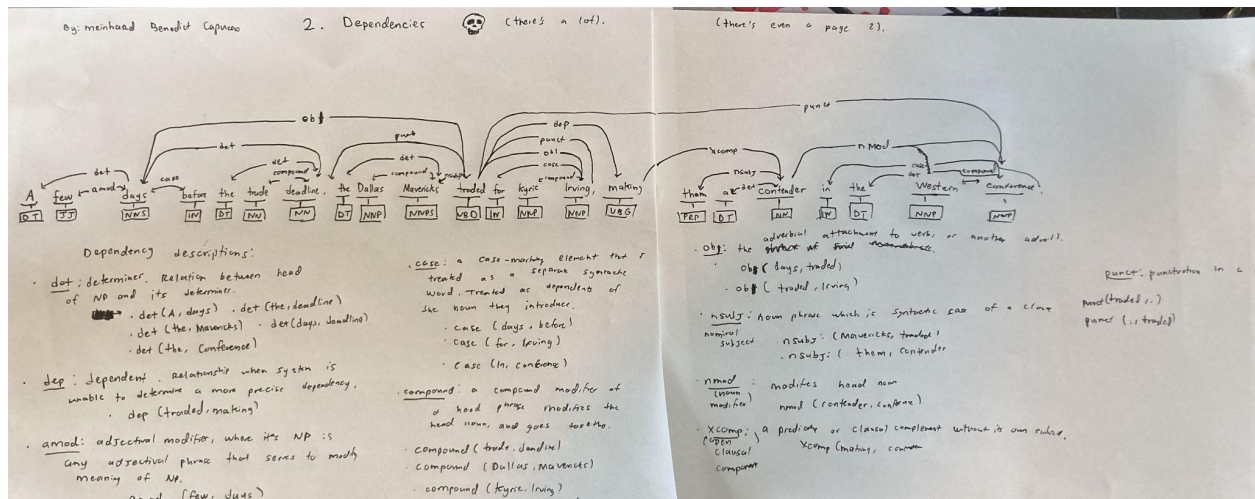 By: meinhard Benedict Capucao
2. Dependencies (there's a lot).
(there's even a page 2).
punct
obj
dep
det
punct
punct
obl
xcomp
nmod
det
det
compound
det
compound
nsubj
case
compound
nsubj
case
det
compound
det
amod
case
det
A few days before the trade deadline, the Dallas Mavericks traded for Kyrie Irving, making them a contender in the Western conference.
DT JJ NNS IN DT NN NN DT NNP NNPS VBD IN NNP NNP VBG PRP DT NN IN DT NNP NNP
Dependency descriptions:
· det: determiner. Relation between head
of NP and its determiner.
· det (A, days) · det (the, deadline)
· det (the, Mavericks) · det (days, deadline)
· det (the, Conference)
· dep: dependent. Relationship when system is
unable to determine a more precise dependency.
· dep (traded, making)
· amod: adjectival modifier, where it's NP is
any adjectival phrase that serves to modify
meaning of NP.
(few, days)
· case: a case-marking element that is
treated as a separate syntactic
word. Treated as dependents of
the noun they introduce.
· case (days, before)
· case (for, Irving)
· case (In, conference)
· compound: a compound modifier of
a head phrase modifies the
head noun, and goes together.
· compound (trade, deadline)
· compound (Dallas, Mavericks)
· compound (Kyrie, Irving)
adverbial attachment to verb, or another adverb.
· obj: the
· obj (days, traded)
· obj (traded, Irving)
· nsubj: noun phrase which is syntactic case of a clause
nominal
subject
· nsubj (Mavericks, traded)
· nsubj: (them, contender
· nmod: modifies head noun
(noun
modifier)
nmod (contender, conference)
· xcomp: a predicate or clausal complement without its own subject.
(open
clausal
component
xcomp (making, contender
punct: punctuation in a
punct (traded, .)
punct (,, traded)